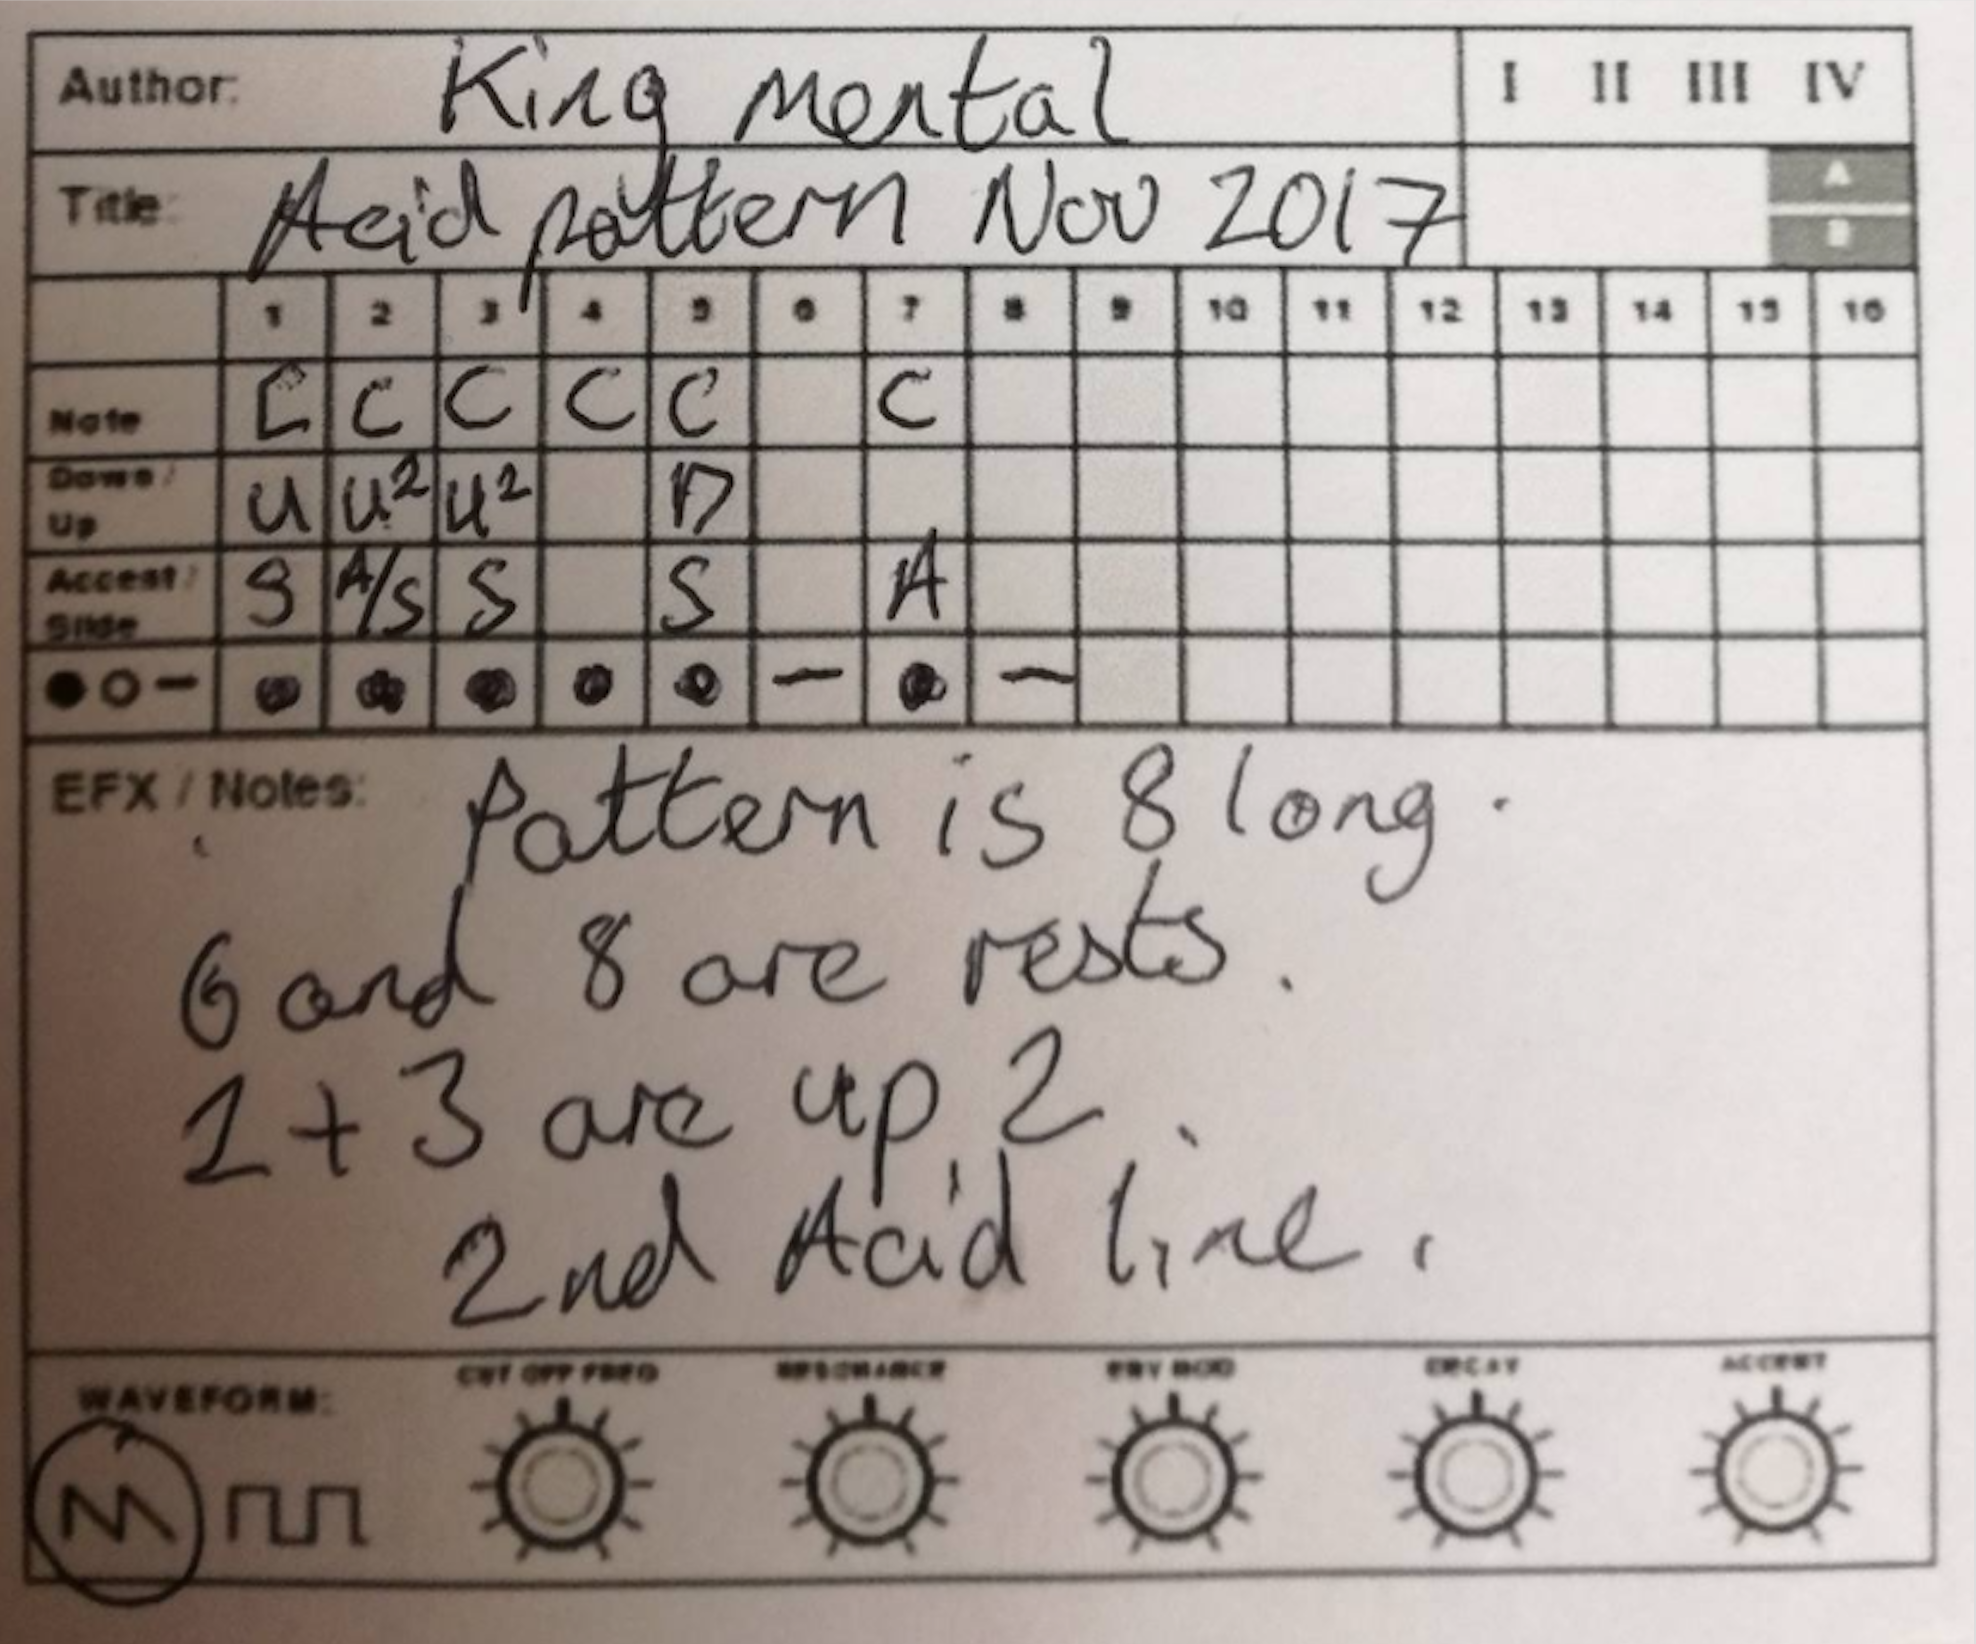 Author: King Mental I II III IV
Title: Acid pattern Nov 2017 A
B
1 2 3 4 5 6 7 8 9 10 11 12 13 14 15 16
Note C C C C C C
Down / Up U U² U² D
Accent / Slide S A/S S S A
EFX / Notes: Pattern is 8 long.
6 and 8 are rests.
1 + 3 are up 2.
2nd Acid line.
WAVEFORM: CUT OFF FREQ RESONANCE ENV MOD DECAY ACCENT